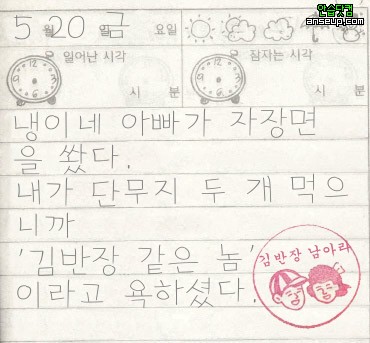 안습닷컴
anseup.com
5월 20일 금 요일
일어난 시각
잠자는 시각
시 분
시 분
냉이네 아빠가 자장면
을 쐈다.
내가 단무지 두 개 먹으
니까
'김반장 같은 놈'
이라고 욕하셨다.
김반장 남아라